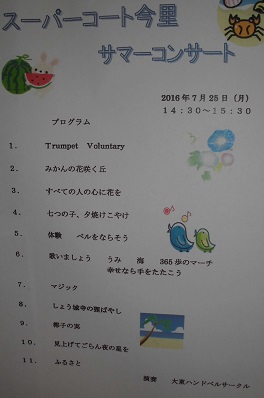 スーパーコート今里
サマーコンサート
2016年7月25日（月）
14：30～15：30
プログラム
1． Trumpet Voluntary
2． みかんの花咲く丘
3． すべての人の心に花を
4． 七つの子、夕焼けこやけ
5． 体験 ベルをならそう
6． 歌いましょう うみ 海 365歩のマーチ
幸せなら手をたたこう
7． マジック
8． しょう城寺の狸ばやし
9． 椰子の実
10． 見上げてごらん夜の星を
11． ふるさと
演奏 大東ハンドベルサークル